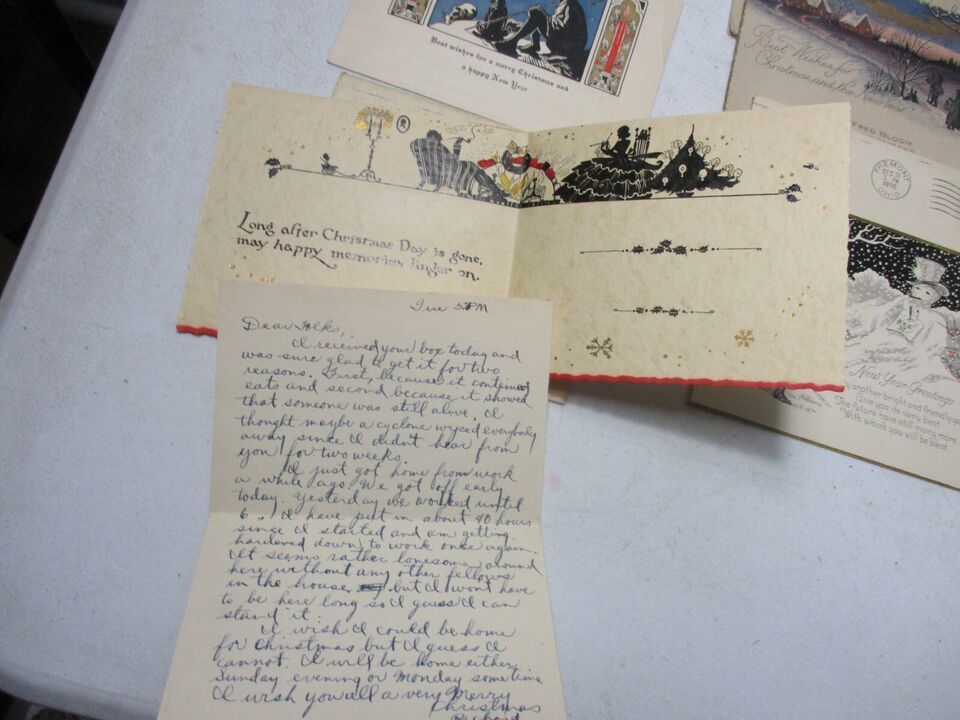 Best wishes for a merry Christmas and
a happy New Year
Best Wishes for
Christmas and the New Year
FRED BLOOM
FREMONT
OHIO
Long after Christmas Day is gone,
may happy memories linger on.
New Year Greetings
another bright and friendly
Give you its very best
The future have still many more
With which you will be blest
Tue 5 PM
Dear Folks,
I received your box today and
was sure glad to get it for two
reasons. First, because it contained
eats and second because it showed
that someone was still alive. I
thought maybe a cyclone wyped everybody
away since I didn't hear from
you for two weeks.
I just got home from work
a while ago. We got off early
today. Yesterday we worked until
6. I have put in about 40 hours
since I started and am getting
hardened down to work once again.
It seems rather lonesome around
here without any other fellows
in the house, but I won't have
to be here long so I guess I can
stand it.
I wish I could be home
for Christmas but I guess I
cannot. I will be home either
Sunday evening or Monday sometime
I wish you all a very Merry
Christmas
Richard